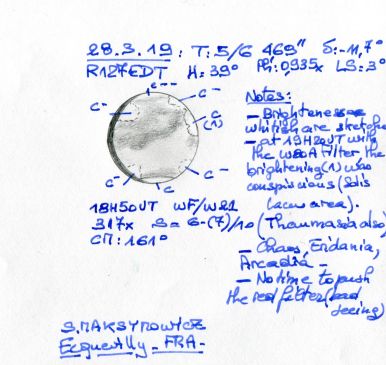 28.3.19: T: 5/6 4,69" δ: -11,7°
R127EDT H: 39° Ph: 0,935x LS: 3°
C--
C-
C-
C
(1)
C-
C
C-
Notes:
- Brightenesse
whitish are sketched
- at 19H20UT with
the W80A filter the
brightening (1) was
conspicuous (Solis
Lacus area).
(Thaumasia also)
- Chaos, Eridania,
Arcadia -
- No time to push
the red filter (bad
seeing)
18H50UT WF/W21
317x S= 6-(7)/10
CM: 161°
S. MAKSYMOWICZ
Ecquevilly - FRA-